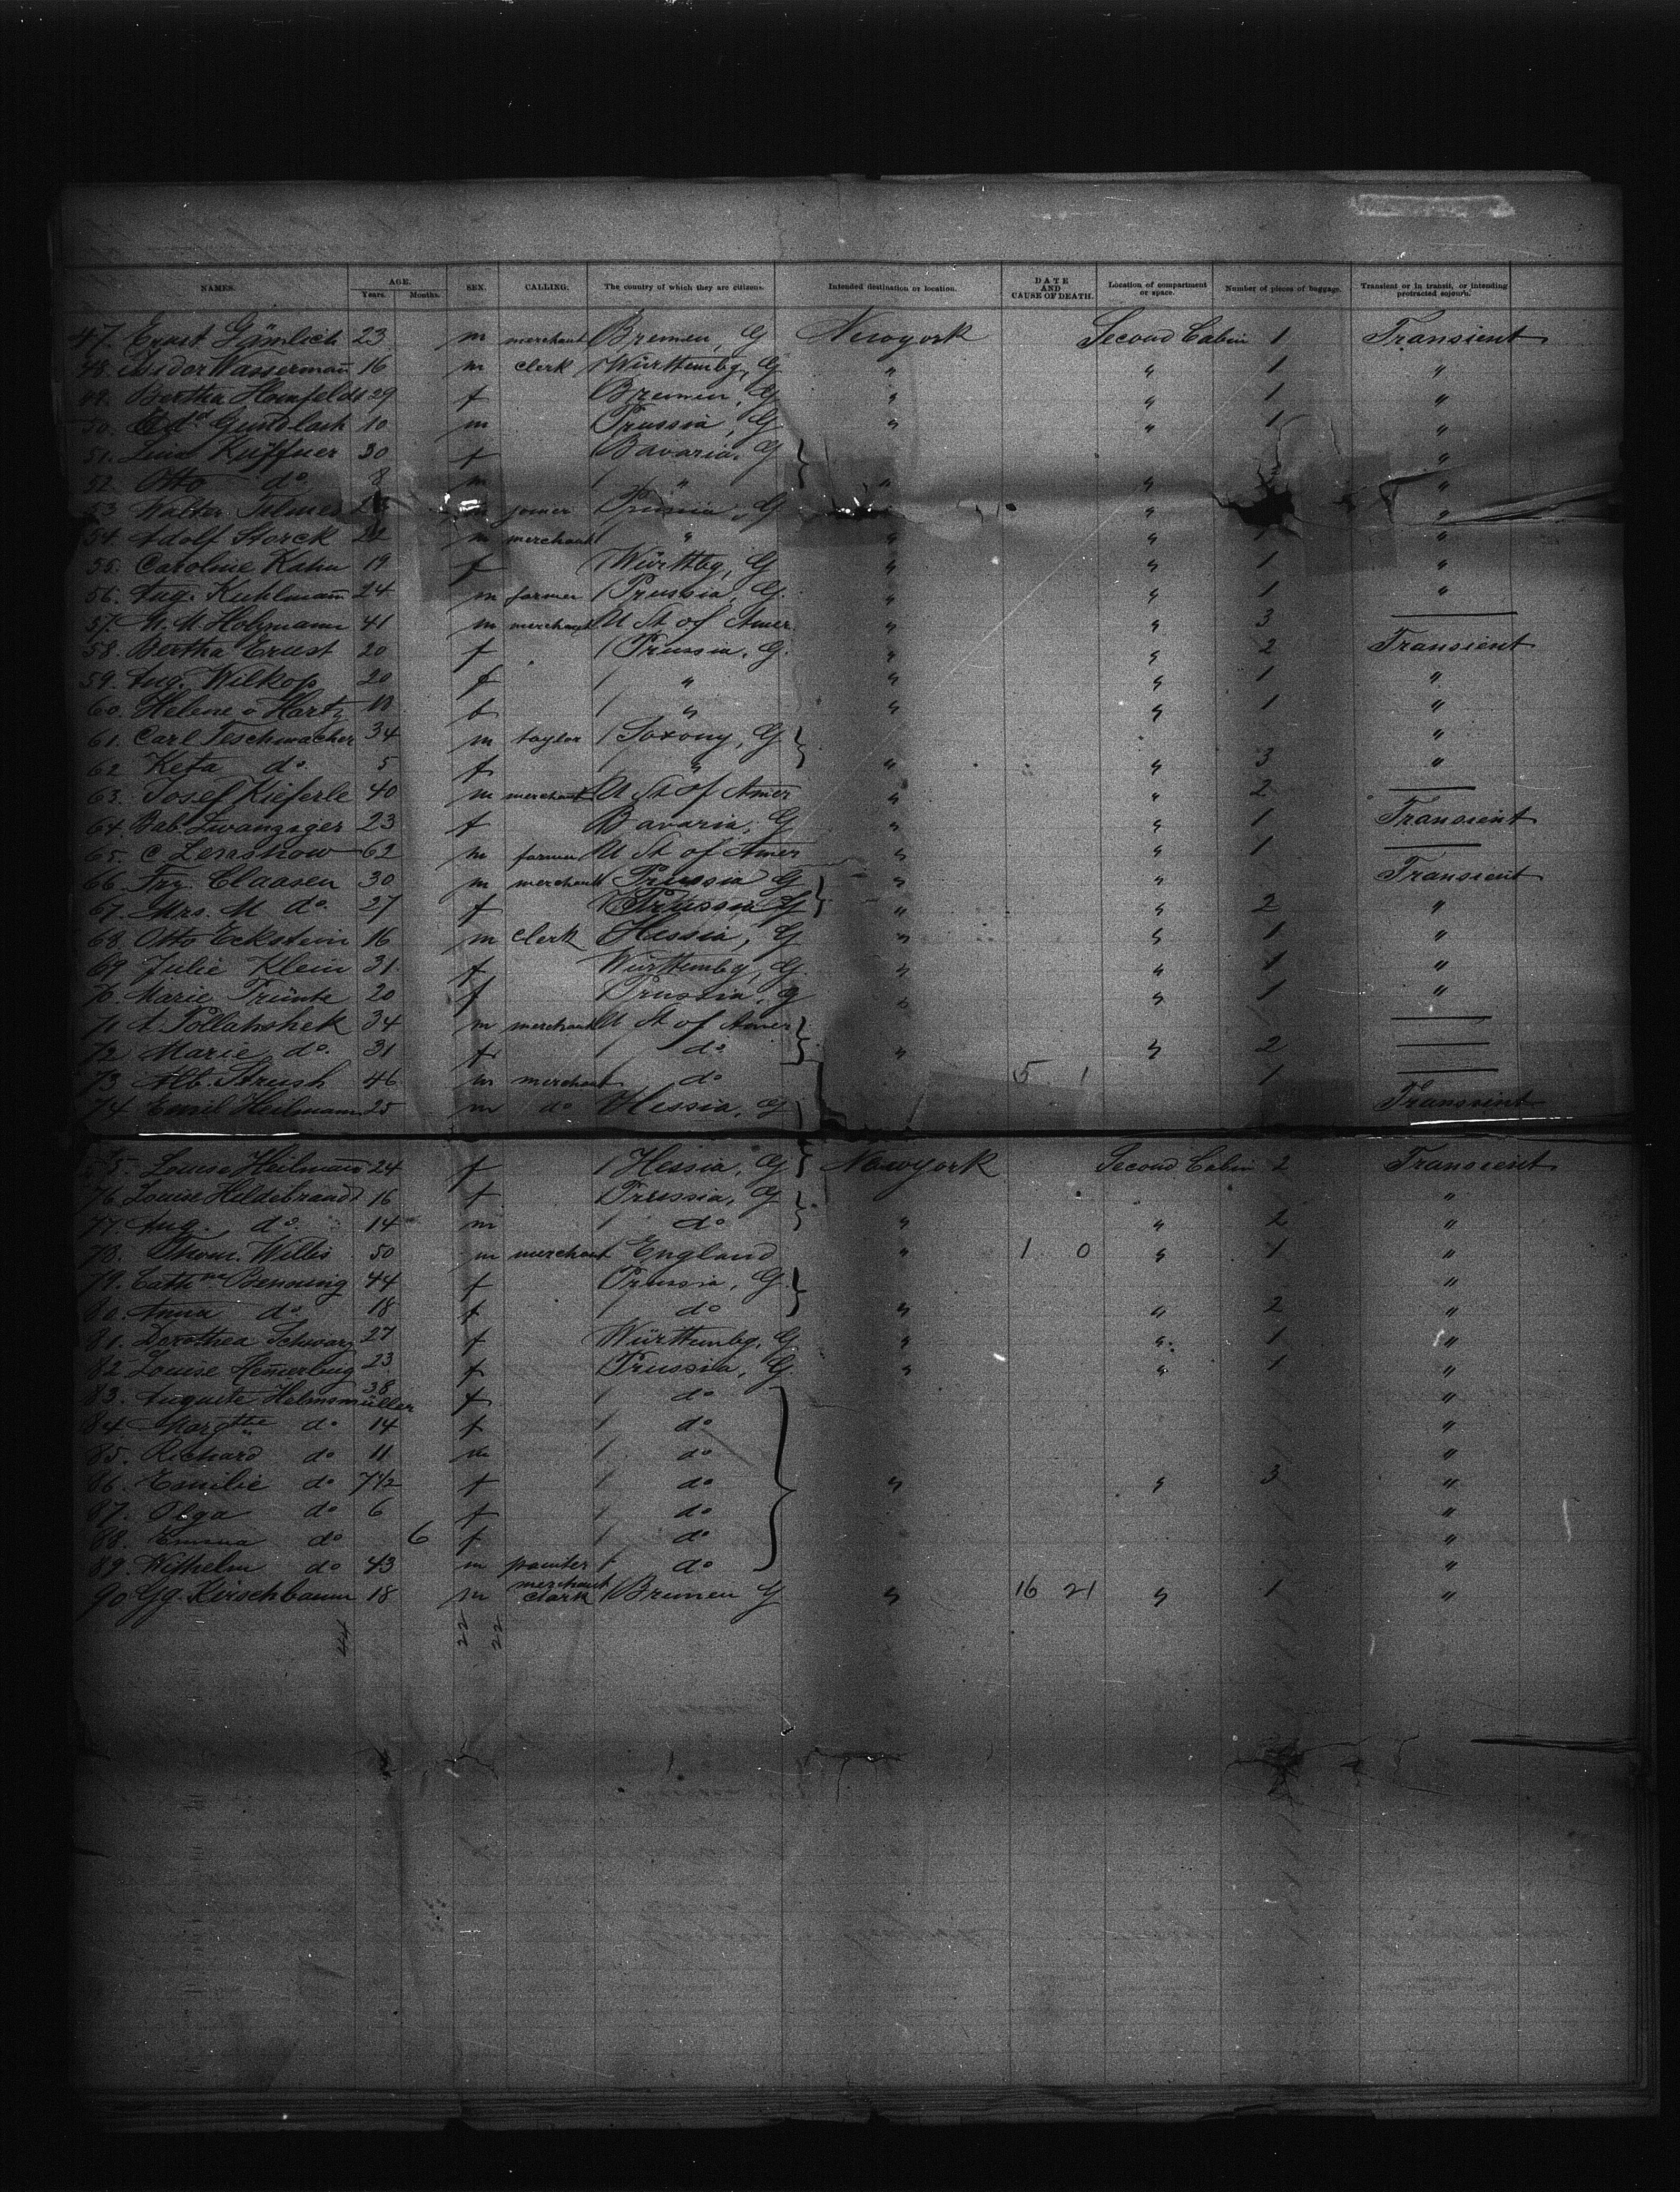 NAMES. AGE. Years. Months. SEX. CALLING. The country of which they are citizens. Intended destination or location. DATE AND CAUSE OF DEATH. Location of compartment or space. Number of pieces of baggage. Transient or in transit, or intending protracted sojourn.
47. Ernst Gämlich 23 m merchant Bremen, G Newyork Second Cabin 1 Transient
48. Isidor Wassermañ 16 m clerk Württembg, G " " 1 "
49. Bertha 29 f Bremen, G " " 1 "
50. Edd Gundlach 10 m Prussia, G " " 1 "
51. Lina Küffner 30 f Bavaria, G "
52. Otto do 8 m / " " " "
53 Walter m joiner Prussia, G " "
54. Adolf Storck m merchant / " " " "
55. Caroline Kahn 19 f Württbg, G " " 1 "
56. Aug. Kuhlmañ 24 m farmer / Prussia, G. " " 1 "
57. M. Holzmann 41 m merchant U St of Amer. " " 3 —
58. Bertha Ernst 20 f / Prussia, G. " " 2 Transient
59. Aug. Wilkop 20 f / " " " 1 "
60. Helene v Hartz 18 f / " " " 1 "
61. Carl Teschmacher 34 m taylor / Saxony, G "
62 Keta do. 5 f / " " " 3 "
63. Josef Kieferle 40 m merchant U St of Amer " " 2 —
64. Bab. Zwanziger 23 f Bavaria, G " " 1 Transient
65. C. 62 m farmer U St of Amer " " 1 —
66. Frz. Claasen 30 m merchant Prussia G " " Transient
67. Mrs. M do. 27 f / Prussia G " " 2 "
68. Otto Eckstein 16 m clerk Hessia, G " " 1 "
69. Julie Klein 31. f Württembg, G. " " 1 "
70. Marie Prünte 20 f Prussia, G " " 1 "
71 A. Pollatshek 34 m merchant U St of Amer —
72 Marie do. 31 f / do. " " 2 —
73 Alb. Strush 46 m merchant / do 5 1 1 —
74 Emil Heilmann 25 m do Hessia, G Transient
75. Louise Heilmañ 24 f / Hessia, G Newyork Second Cabin 2 Transient
76. Louise Hildebrand 16 f Prussia, G "
77. Aug. do. 14 m / do " " 2 "
78. Thom. Willis 50 m merchant England " 1 0 " 1 "
79. Cathne Benning 44 f Prussia, G "
80. Anna do. 18 f / do " " 2 "
81. Dorothea Schwarz 27 f Württembg, G " " 1 "
82 Louise Hem̃erling 23 f Prussia, G. " " 1 "
83. Auguste Helmsmüller 38 f / do "
84 Margthe do 14 f / do "
85. Richard do 11 m / do "
86. Emilie do 7 1/2 f / do " " 3 "
87. Olga do 6 f / do "
88. Emma do 6 f / do "
89. Wilhelm do 43 m painter / do "
90 Gg. Kirschbaum 18 m merchant clark / Bremen G " 16 21 " 1 "
44 22 22